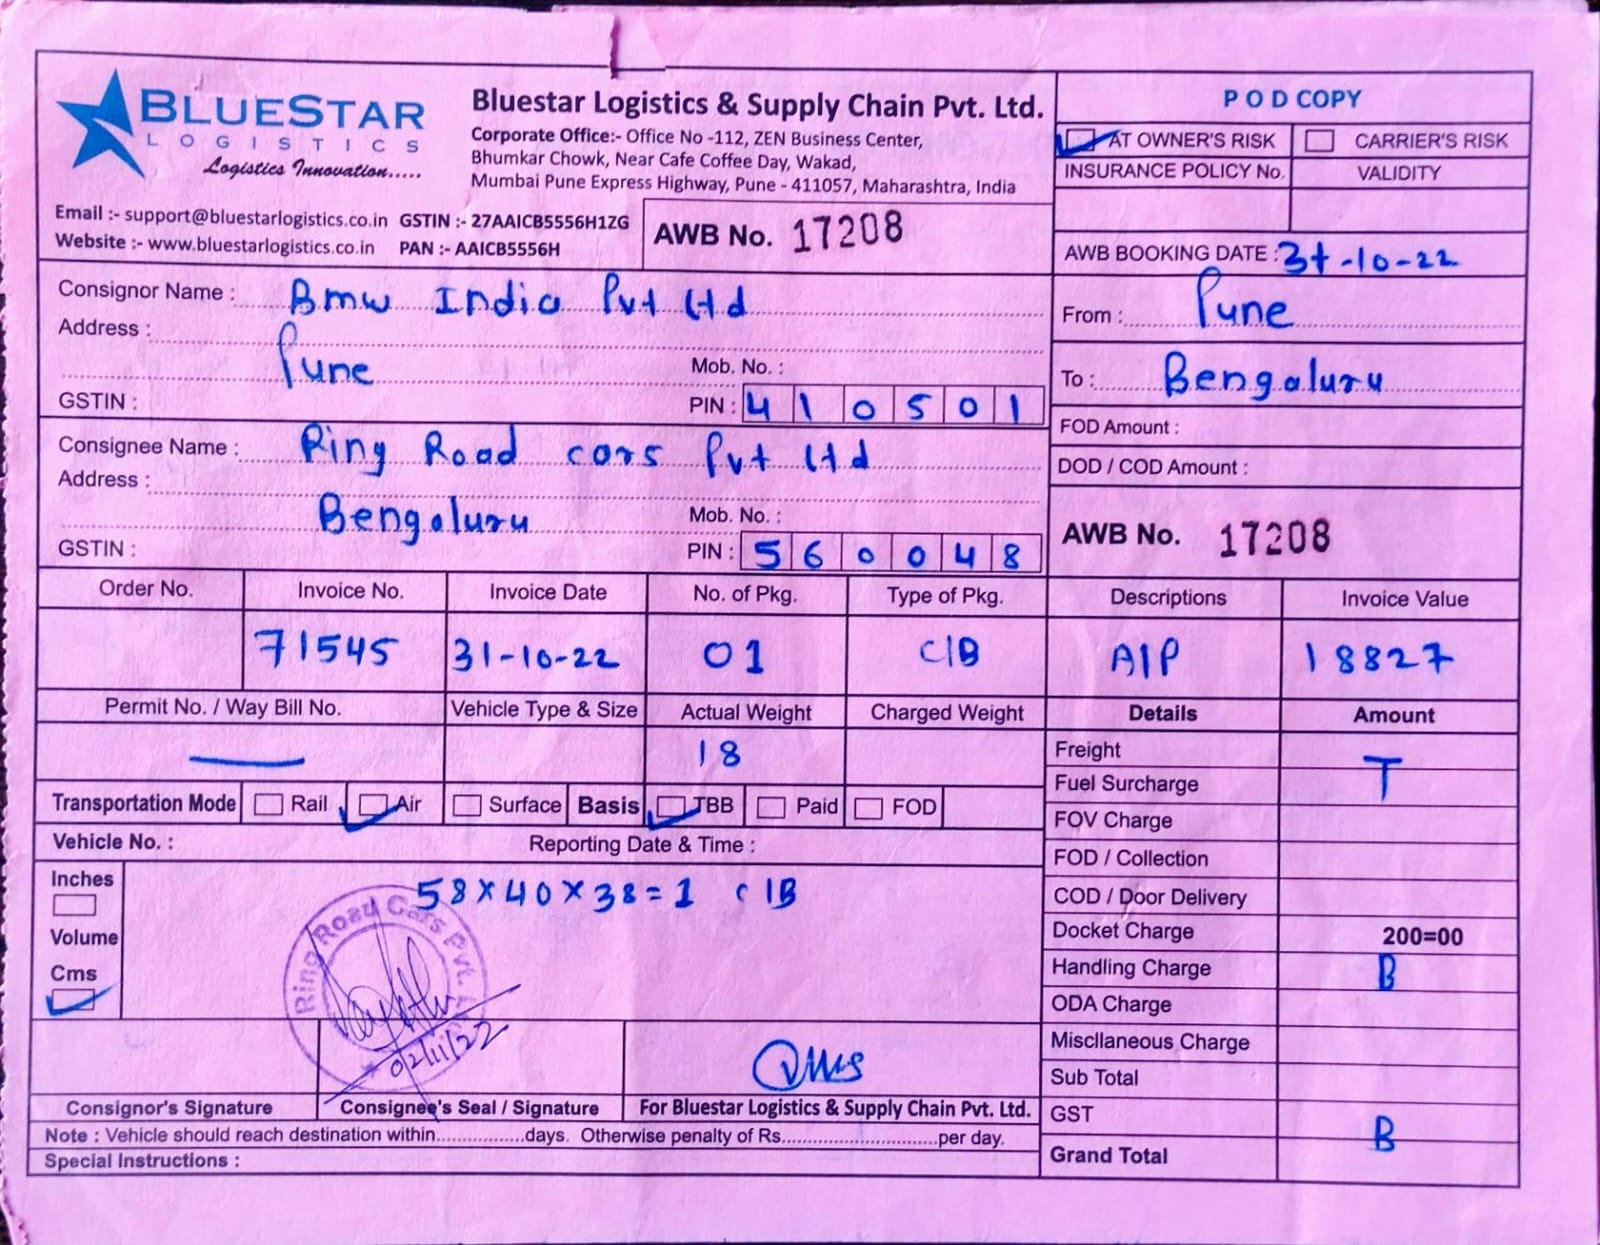 BLUESTAR
LOGISTICS
Logistics Innovation.....
Bluestar Logistics & Supply Chain Pvt. Ltd.
Corporate Office:- Office No -112, ZEN Business Center,
Bhumkar Chowk, Near Cafe Coffee Day, Wakad,
Mumbai Pune Express Highway, Pune - 411057, Maharashtra, India
Email :- support@bluestarlogistics.co.in GSTIN :- 27AAICB5556H1ZG
Website :- www.bluestarlogistics.co.in PAN :- AAICB5556H
AWB No. 17208
POD COPY
AT OWNER'S RISK CARRIER'S RISK
INSURANCE POLICY No. VALIDITY
AWB BOOKING DATE : 31-10-22
Consignor Name : Bmw India Pvt Ltd
Address :
Pune
Mob. No. :
GSTIN :
PIN : 410501
From : Pune
To : Bengaluru
FOD Amount :
DOD / COD Amount :
Consignee Name : Ring Road cars Pvt Ltd
Address :
Bengaluru
Mob. No. :
GSTIN :
PIN : 560048
AWB No. 17208
Order No. Invoice No. Invoice Date No. of Pkg. Type of Pkg. Descriptions Invoice Value
71545 31-10-22 01 C/B A/P 18827
Permit No. / Way Bill No. Vehicle Type & Size Actual Weight Charged Weight Details Amount
18
Transportation Mode Rail Air Surface Basis TBB Paid FOD
Vehicle No. : Reporting Date & Time :
Inches
Volume
Cms
58×40×38=1 C/B
Ring Road Cars Pvt.
02/11/22
Freight
T
Fuel Surcharge
FOV Charge
FOD / Collection
COD / Door Delivery
Docket Charge 200=00
Handling Charge B
ODA Charge
Miscllaneous Charge
Sub Total
GST
B
Grand Total
Consignor's Signature Consignee's Seal / Signature For Bluestar Logistics & Supply Chain Pvt. Ltd.
Note : Vehicle should reach destination within.................days. Otherwise penalty of Rs..............................per day.
Special Instructions :